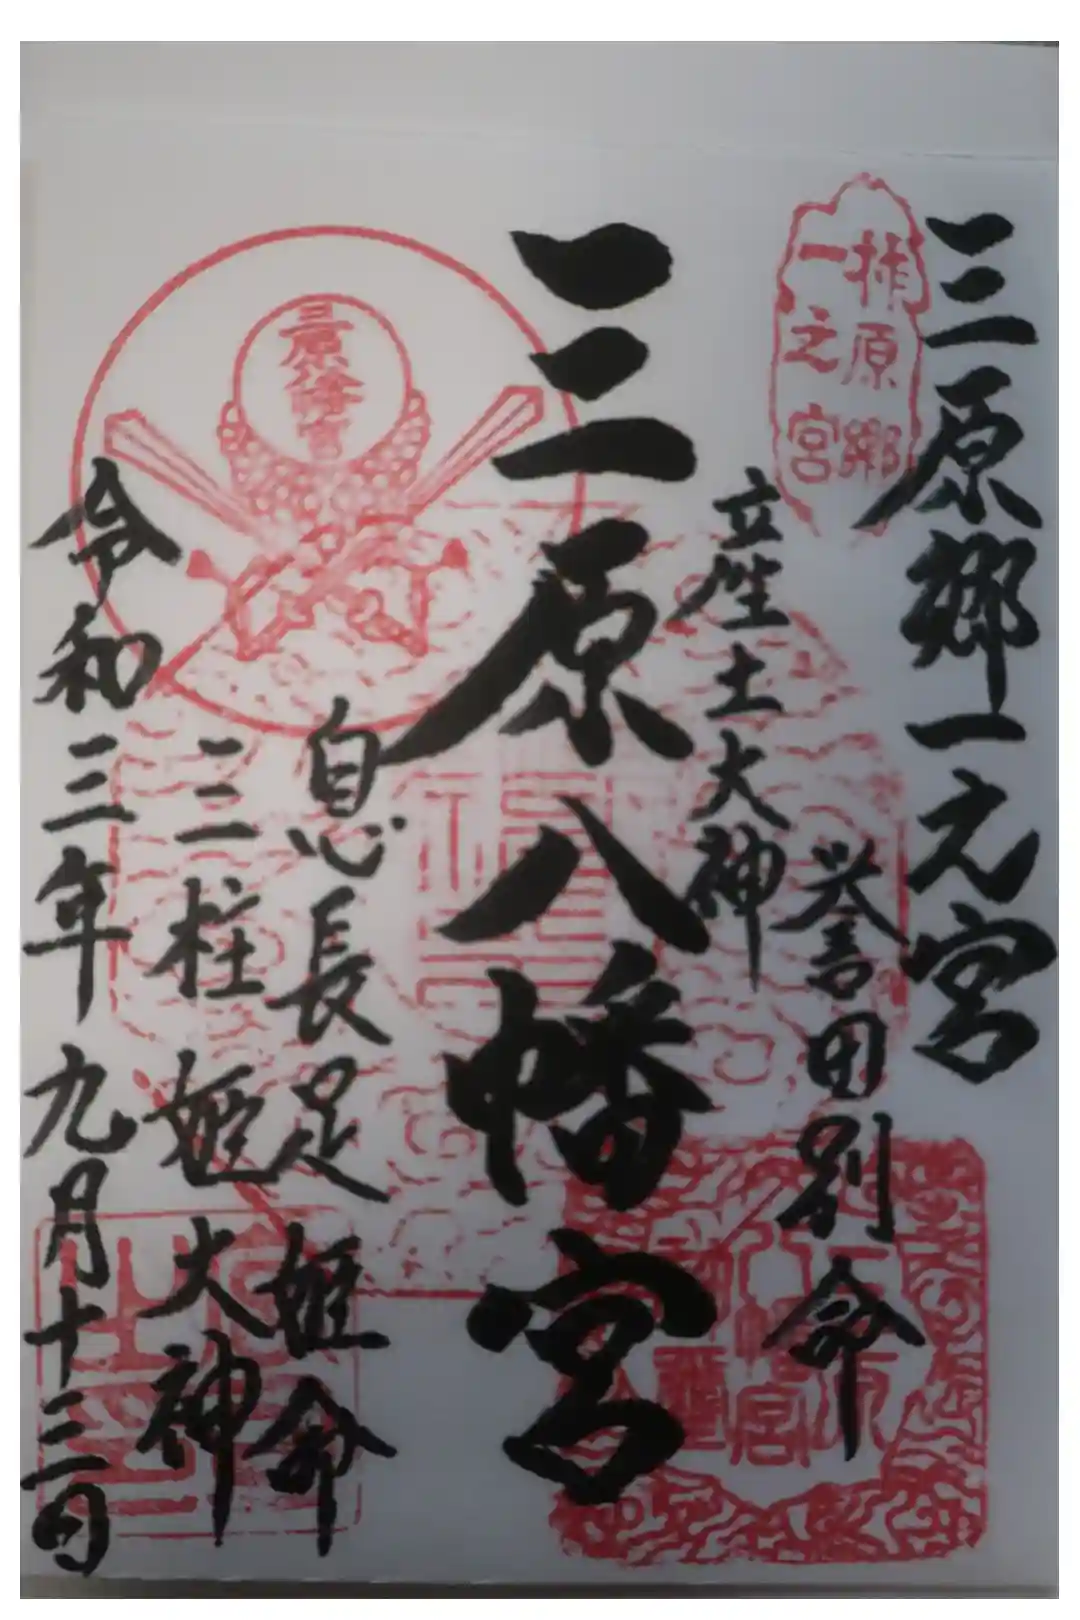 三原郷一元宮
柿原郷
一之宮
誉田別命
立産土大神
三原八幡宮
三原八幡宮
息長足姫命
三柱姫大神
令和三年九月十三日